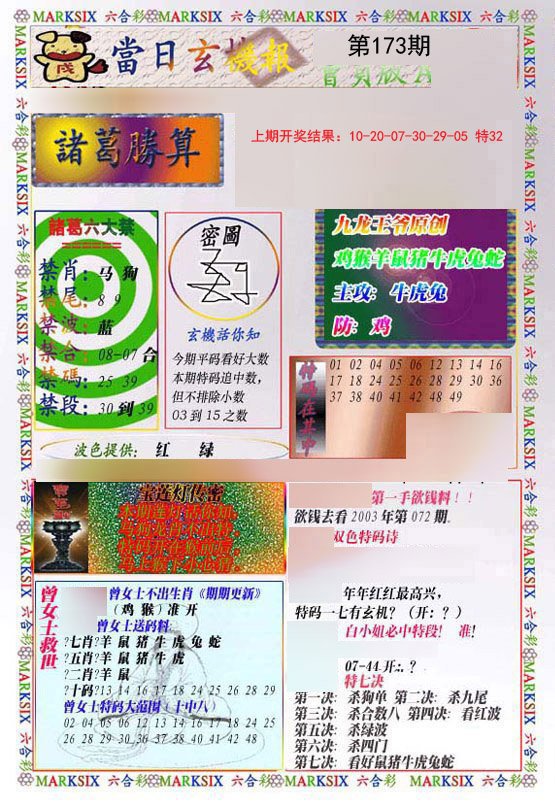 MARKSIX 六合彩 MARKSIX 六合彩 MARKSIX 六合彩 MARKSIX 六合彩
當日玄機報
第173期
諸葛勝算
上期开奖结果：10-20-07-30-29-05 特32
諸葛六大禁
禁肖：马 狗
禁尾：8 9
禁波：蓝
禁合：08-07 合
禁碼：25 39
禁段：30 到 39
密圖
玄機話你知
今期平码看好大数
本期特码追中数，
但不排除小数
03 到 15 之数
九龙王爷原创
鸡猴羊鼠猪牛虎兔蛇
主攻：牛虎兔
防：鸡
特码在其中
01 02 04 05 06 12 13 14 16
17 18 24 25 26 28 29 30 36
37 38 40 41 42 48 49
波色提供： 红 绿
宝莲灯传密
第一手欲钱料！！
欲钱去看 2003 年第 072 期。
双色特码诗
年年红红最高兴，
特码一七有玄机？（开：？）
白小姐必中特段！ 准！
07-44 开:. ？
特七决
第一决：杀狗单 第二决：杀九尾
第三决：杀合数八 第四决：看红波
第五决：杀绿波
第六决：杀四门
第七决：看好鼠猪牛虎兔蛇
曾女士救世
曾女士不出生肖《期期更新》
（鸡 猴）准 开
曾女士送码料
?七肖?羊 鼠 猪 牛 虎 兔 蛇
?五肖?羊 鼠 猪 牛 虎
?二肖?羊 鼠
?十码?13 14 16 17 18 24 25 26 28 29
曾女士特码大范围（十中八）
02 04 05 06 12 13 14 16 17 18 24 25
26 28 29 30 36 37 38 40 41 42 48
MARKSIX 六合彩 MARKSIX 六合彩 MARKSIX 六合彩 MARKSIX 六合彩